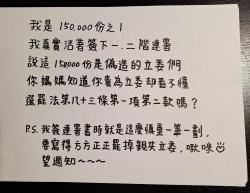 我是150,000份之1
我真實活者簽下一.二階連署
說這150000份是偽造的立委們
你媽媽知道你貴為立委却看不懂
選罷法第八十三條第一項第二款嗎？
P.S. 我簽連署書時就是這麼慎重一筆一劃，
要寫得方方正正罷掉親共立委，啾咪
望週知～～～